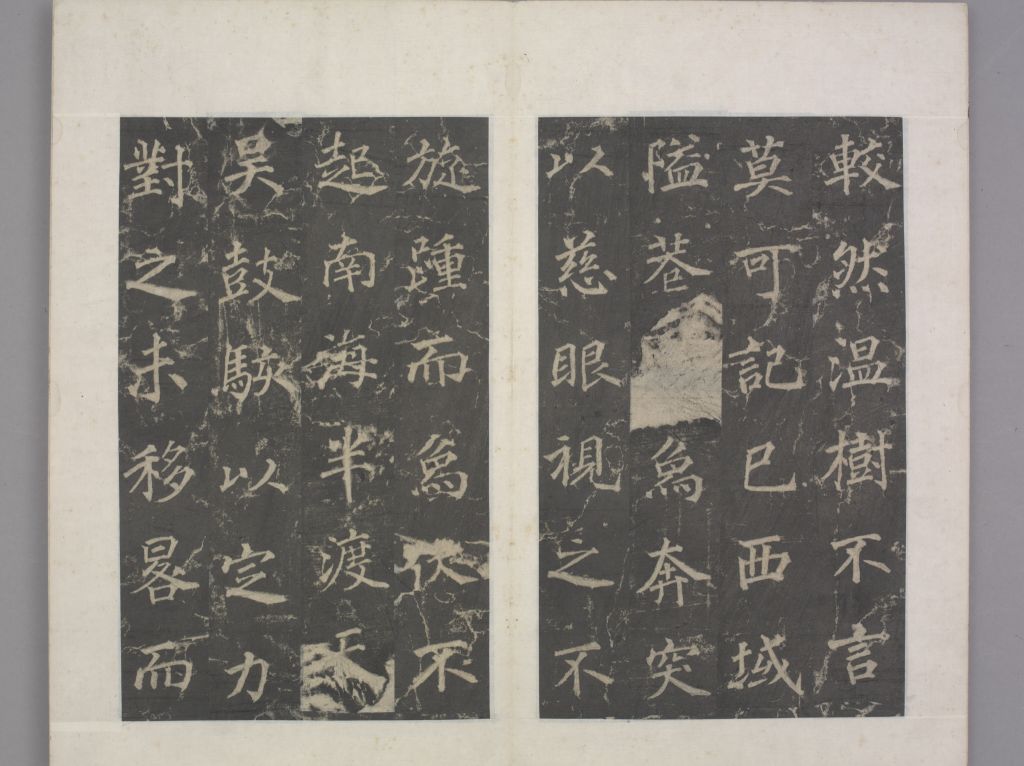 較然溫樹不言
莫可記已西域
隘巷爲奔突
以慈眼視之不
旋踵而爲伏不
起南海半渡
吴鼓駭以定力
對之未移晷而